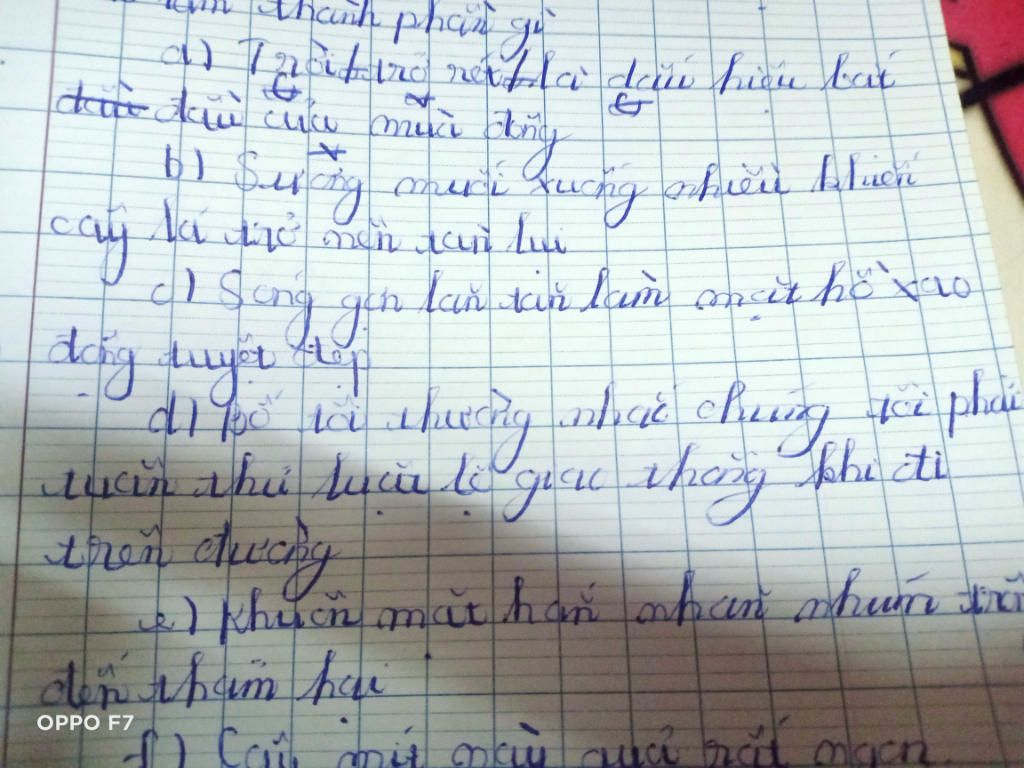 làm thành phần gì
a) Trời trở rét là dấu hiệu bắt
đầu của mùa đông
b) Sương muối xuống nhiều khiến
cây lá trở nên tàn lụi
c) Sóng gợn lăn tăn làm mặt hồ xao
động tuyệt đẹp
d) Bố tôi thường nhắc chúng tôi phải
tuân thủ luật lệ giao thông khi đi
trên đường
e) Khuôn mặt hắn nhăn nhúm
đến thảm hại
f) Cây mít này quả rất ngon
OPPO F7